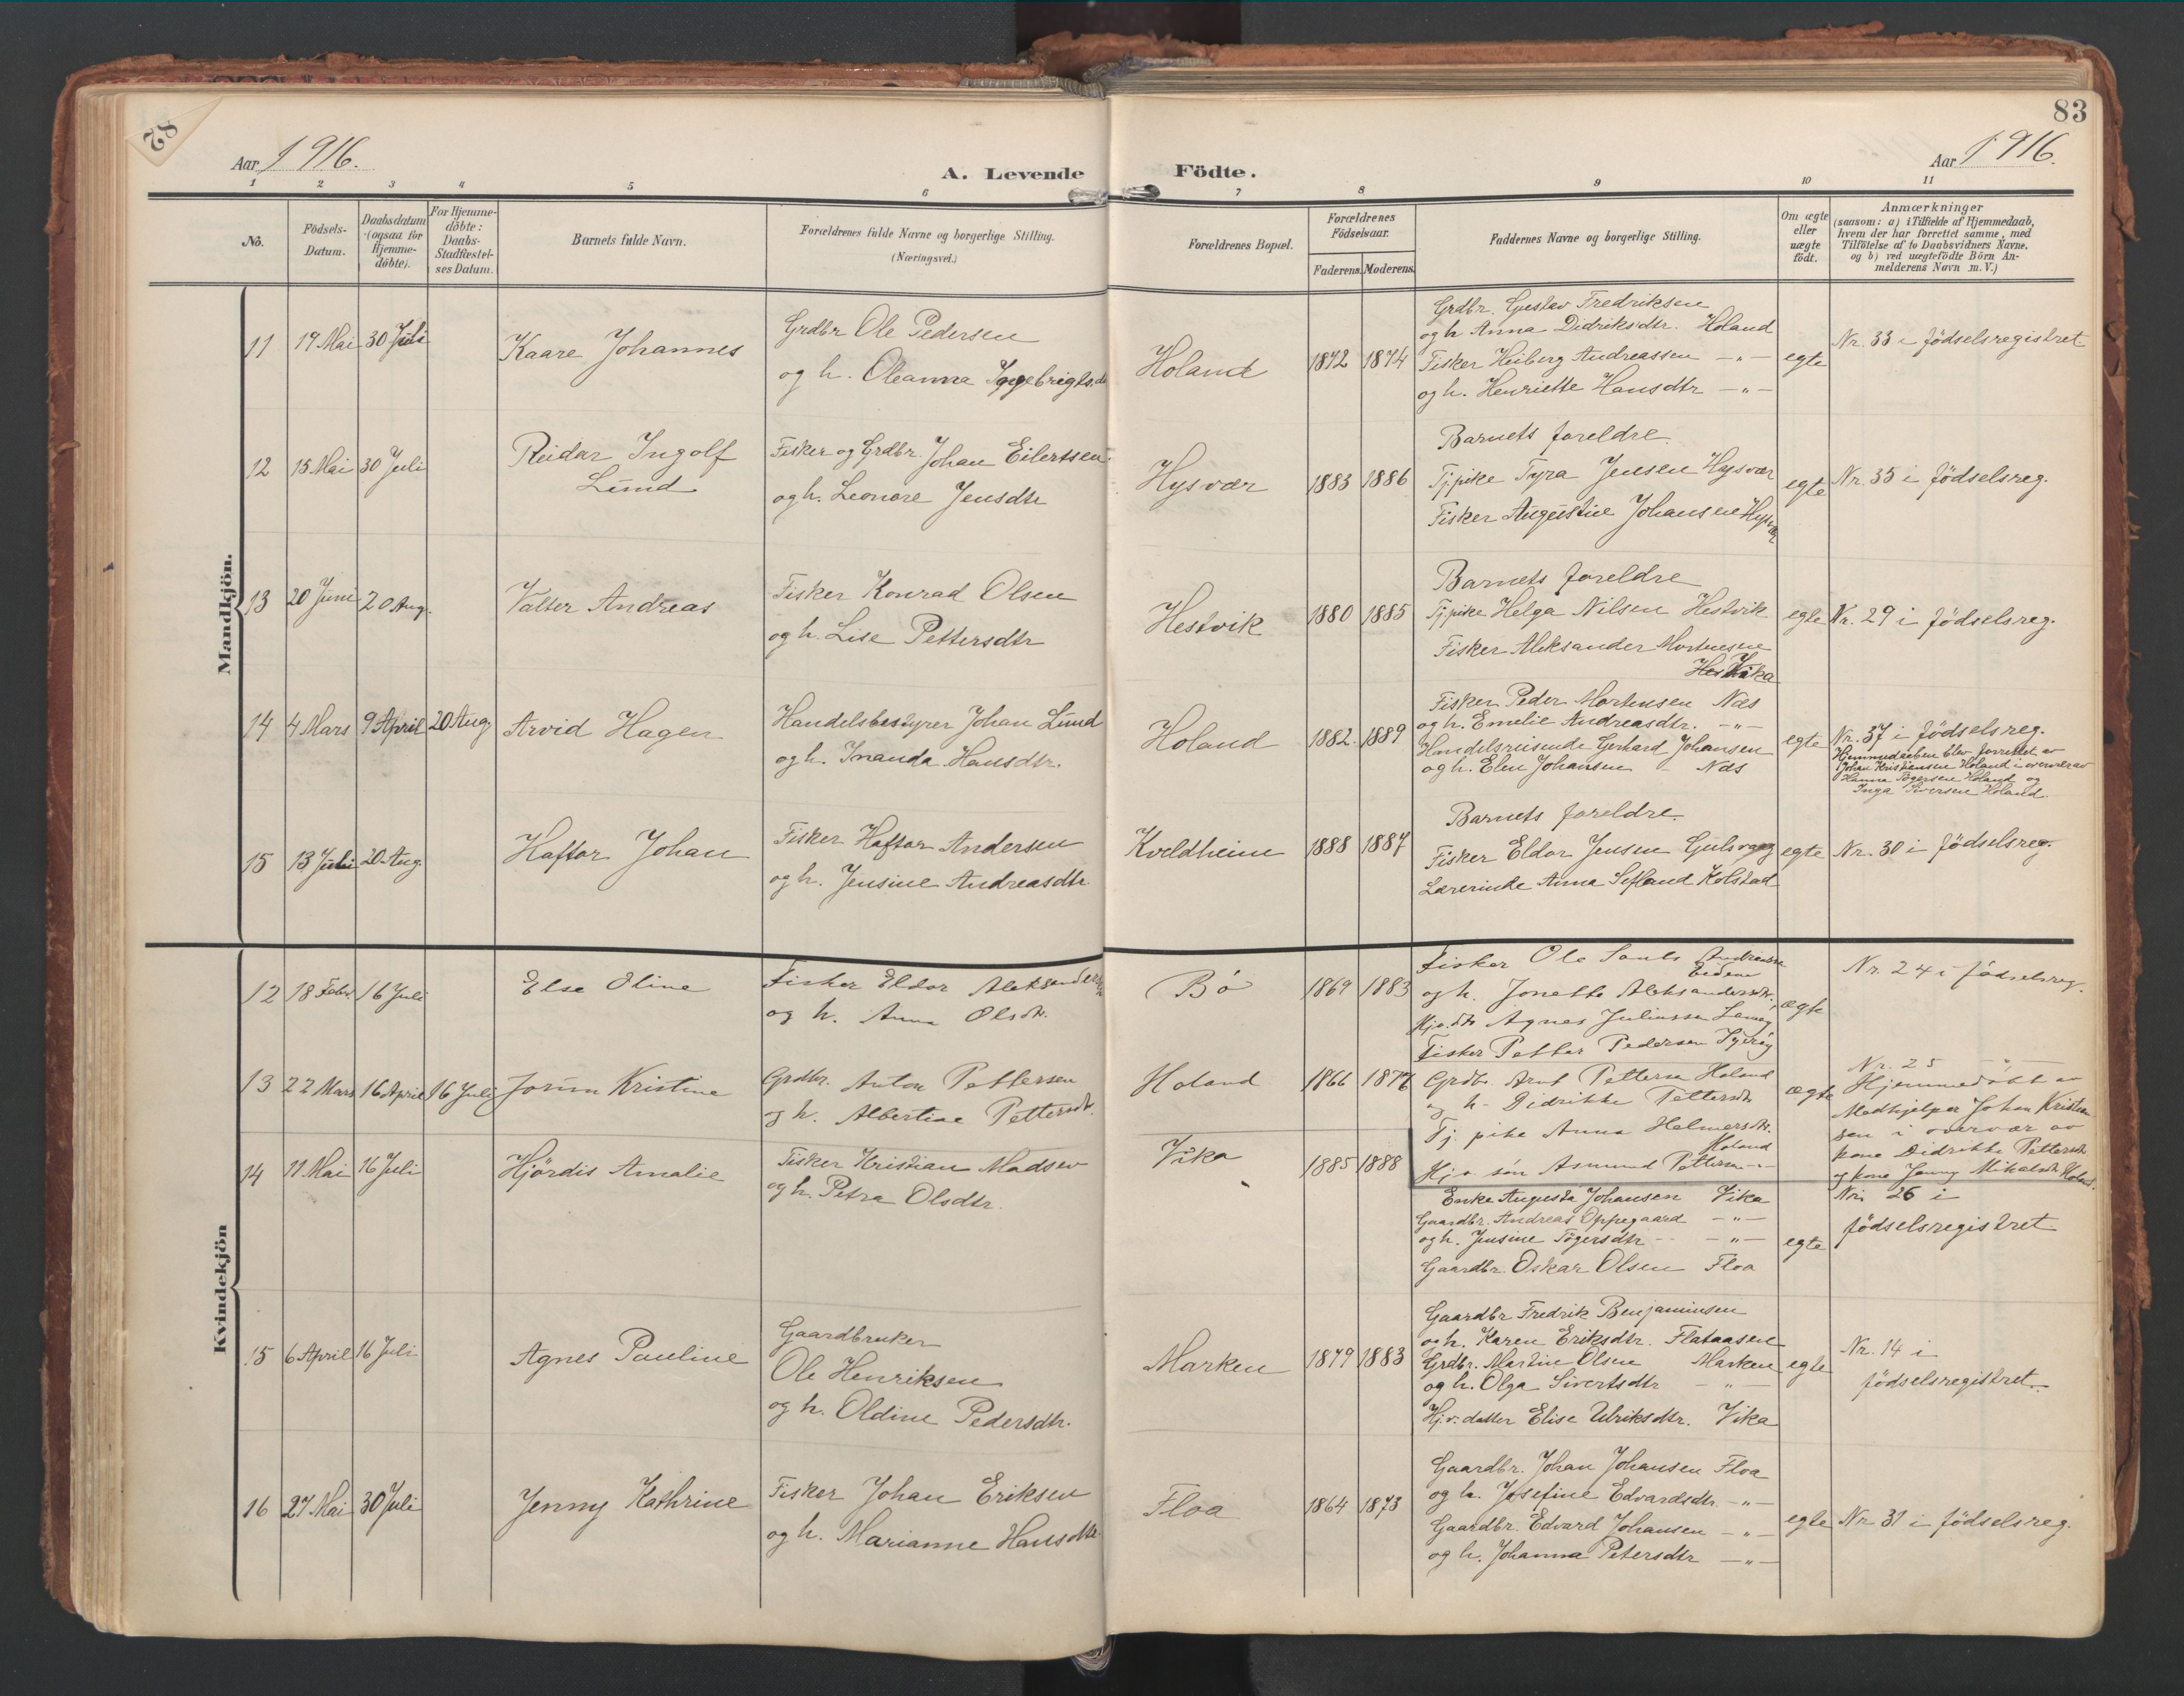 82
83
Aar 1916.
A. Levende Födte.
Aar 1916.
1 2 3 4 5 6 7 8 9 10 11
No.
Födsels-Datum.
Daabsdatum (ogsaa for Hjemme-döbte).
For Hjemme-döbte: Daabs-Stadfæstel-ses Datum.
Barnets fulde Navn.
Forældrenes fulde Navne og borgerlige Stilling.
(Næringsvei.)
Forældrenes Bopæl.
Forældrenes Födselsaar.
Faderens. Moderens.
Faddernes Navne og borgerlige Stilling.
Om ægte eller uægte födt.
Anmærkninger
(saasom: a) i Tilfælde af Hjemmedaab,
hvem der har forrettet samme, med
Tilföielse af to Daabsvidners Navne.
og b) ved uægtefödte Börn An-
melderens Navn m. V.)
Mandkjön.
11 19 Mai 30 Juli
Kaare Johannes
Grdbr Ole Pedersen
og h. Oleanna Ingebrigtsd
Holand
1872 1874
Grdbr. Gustav Fredriksen
og h. Anna Didriksdtr. Holand
Fisker Heiberg Andreassen -"-
og h. Henriette Hansdtr -"-
egte
Nr. 33 i födselsregistret.
12 15 Mai 30 Juli
Reidar Ingolf
Lund
Fisker og Grdbr. Johan Eilertsen
og h. Leonore Jensdtr
Hysvær
1883 1886
Barnets foreldre.
Tj.pike Tyra Jensen Hysvær
Fisker Augustine Johansen Hysvær
egte
Nr. 35 i födselsreg.
13 20 Juni 20 Aug.
Valter Andreas
Fisker Konrad Olsen
og h. Lise Pettersdtr
Hestvik
1880 1885
Barnets foreldre
Tj.pike Helga Nilsen Hestvik
Fisker Aleksander Mortensen
Vika
egte
Nr. 29 i födselsreg.
14 4 Mars 9 April 20 Aug
Arvid Hagen
Handelsbestyrer Johan Lund
og h. Inanda Hansdtr.
Holand
1882. 1889
Fisker Peder Mortensen Næs
og h. Emelie Andreasdtr. -"-
Handelsreisende Gerhard Johansen
og h. Elen Johansen - Næs
egte
Nr. 37 i födselsreg.
Hjemmedaaben blev forrettet av
Johan Kristiansen Holand i overvær av
Hanna Tögersen Holand og
Inga Siversen Holand.
15 13 Juli 20 Aug.
Haftor Johan
Fisker Haftor Andersen
og h. Jensine Andreasdtr.
Kveldheim
1888 1887
Barnets foreldre.
Fisker Eldor Jensen Gulsvaag
Lærerinde Anna Kolstad
egte
Nr. 30 i födselsreg.
Kvindekjön
12 18 Febr. 16 Juli
Else Oline
Fisker Eldor Aleksandersen
og h. Anna Olsdtr.
Bö
1869 1883
Fisker Ole Andreassen
og h. Jonette Aleksandersdtr.
Hj.v.dtr Agnes Juliussen
Fisker Petter Pedersen
ægte
Nr. 24 i födselsreg.
13 22 Mars 16 April 16 Juli
Jorunn Kristine
Grdbr. Anton Pettersen
og h. Albertine Pettersdtr.
Holand
1866 1876
Grdbr. Arnt Pettersen Holand
og h. Didrikke Pettersdtr
Tj. pike Anna Helmersdtr.
Holand
Hj.v. sön Asmund Pettersen -"-
ægte
Nr. 25 -"-
Hjemmedöbt av
Medhjelper Johan Kristian-
sen i overvær av
kone Didrikke Pettersdtr
og kone Jenny Mikalsdtr Holand.
14 11 Mai 16 Juli
Hjördis Amalie
Fisker Kristian Madsen
og h. Petra Olsdtr.
Vika
1885 1888
Enke Augusta Johansen Vika
Gaardbr. Andreas Oppegaard -"-
og h. Jensine Tögersdtr -"-
Gaardbr. Oskar Olsen Floa
egte
Nr. 26 i
födselsregistret
15 6 April 16 Juli
Agnes Pauline
Gaardbruker
Ole Henriksen
og h. Oldine Pedersdtr.
Marken
1879 1883
Gaardbr Fredrik Benjaminsen
og h. Karen Eriksdtr. Flataasen
Grdbr. Martin Olsen Marken
og h. Olga Sivertsdtr -"-
Hj.v. datter Elise Ulriksdtr. Vika
egte
Nr. 14 i
födselsregistret.
16 27 Mai 30 Juli
Jenny Kathrine
Fisker Johan Eriksen
og h. Marianne Hansdtr.
Floa
1864 1873
Gaardbr. Johan Johansen Floa
og h. Josefine Edvardsdtr. -"-
Gaardbr. Edvard Johansen -"-
og h. Johanna Petersdtr -"-
egte
Nr. 31 i födselsreg.